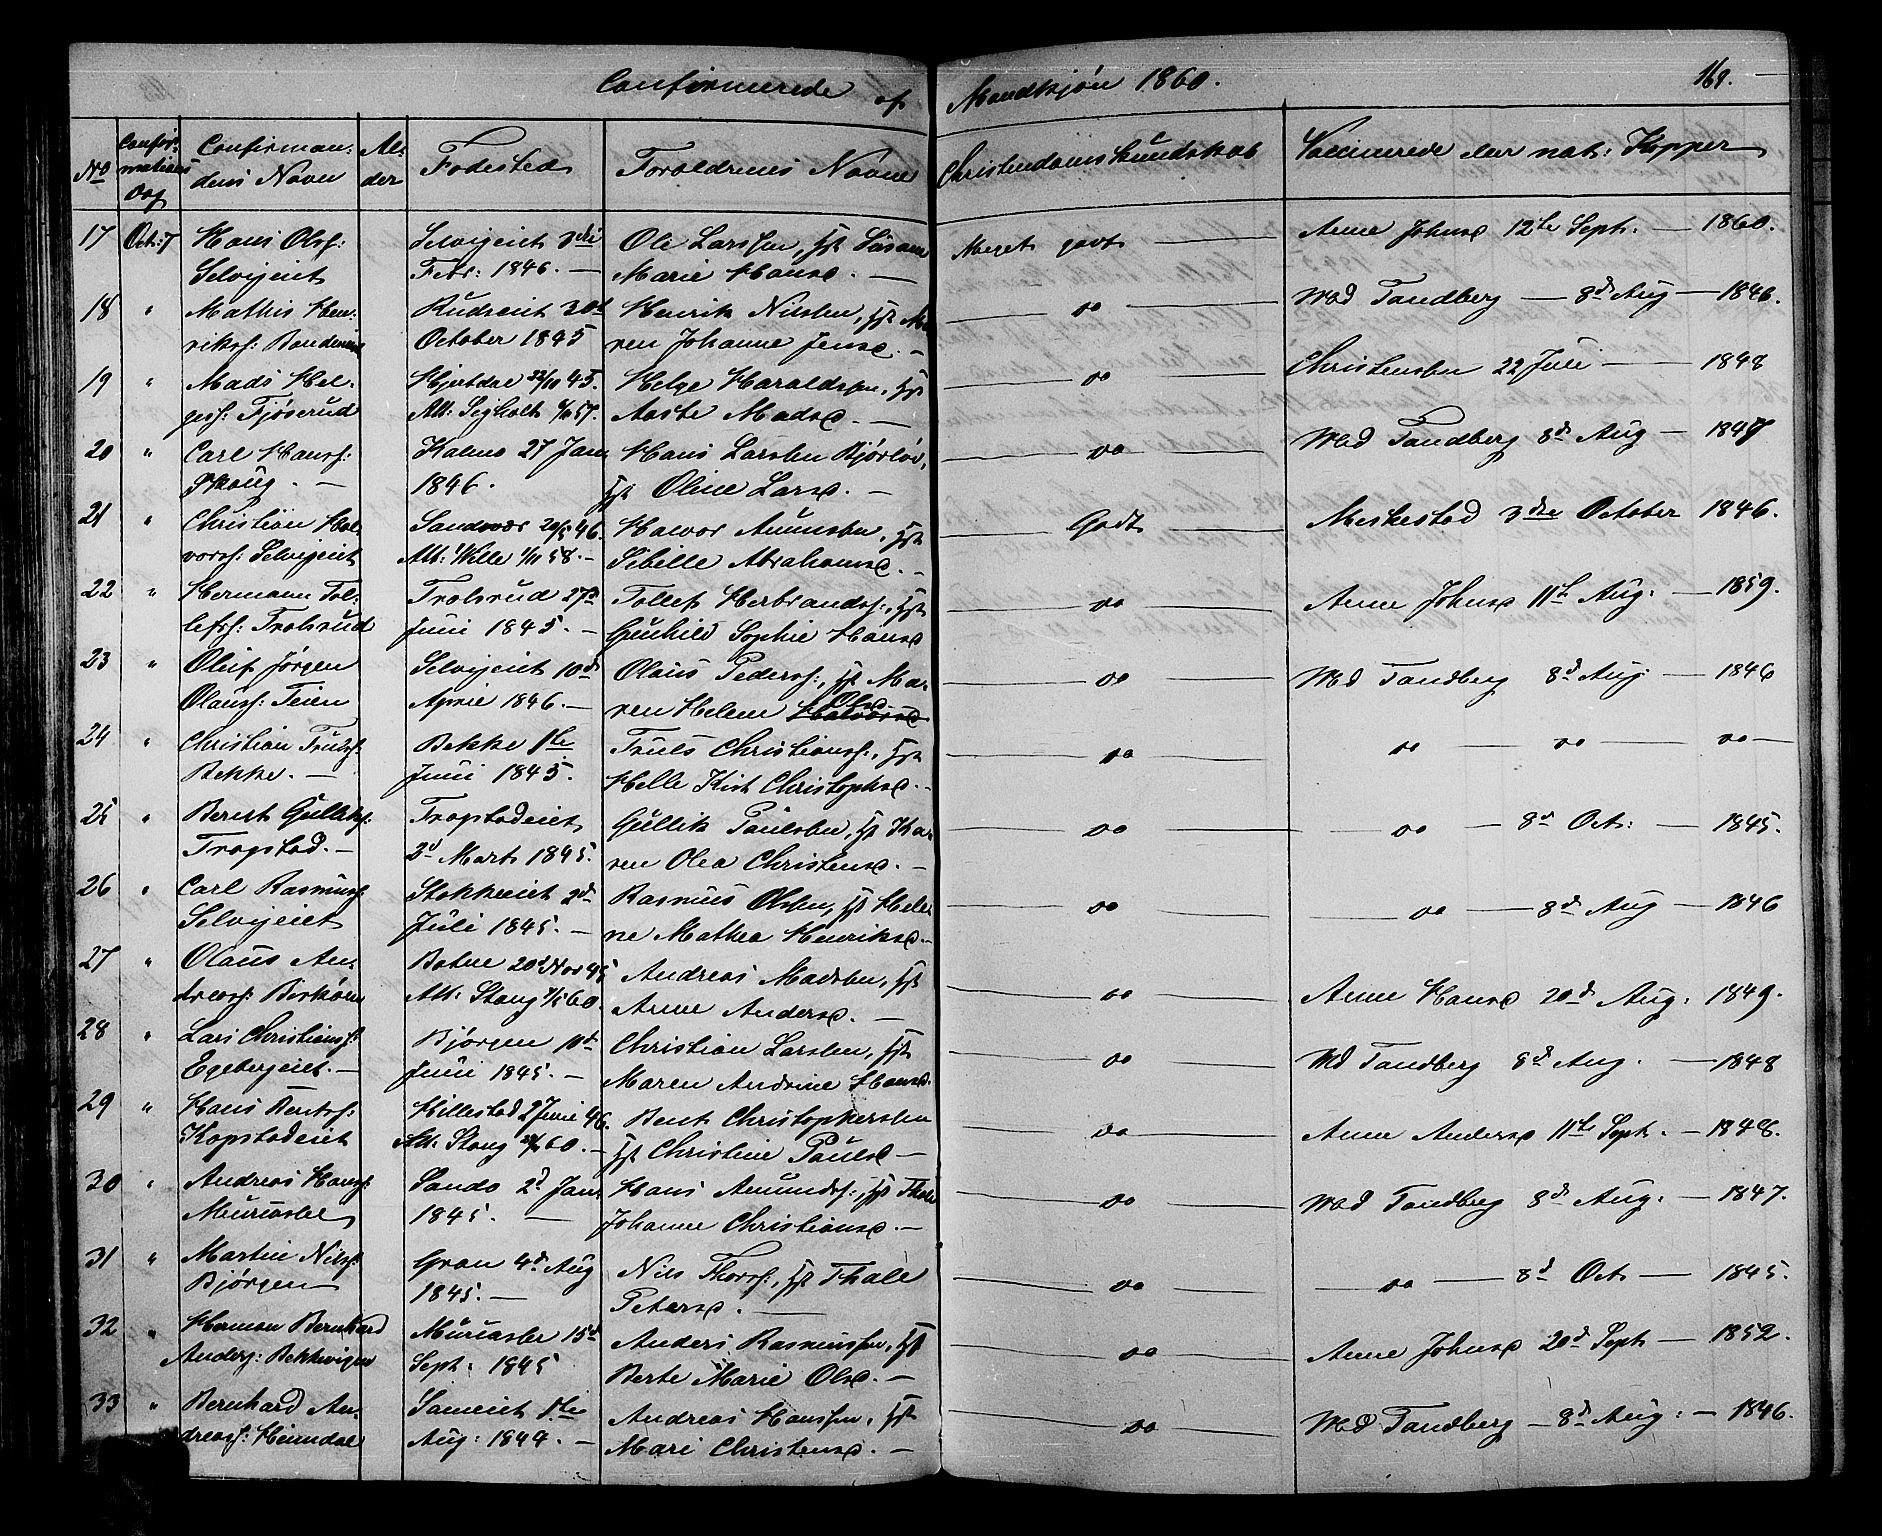 Confirmerede af Mandkjøn 1860. 169.
No Confir: mations Dag Confirman: dens Navn Al: der Fødested Forældrenes Navne Christendoms Kundskab Vaccinerede eller nat: Kopper
17 Oct: 7 Hans Olss: Selvigeiet Selvigeiet 3die Febr: 1846. — Ole Larssen, hst Susanne Marie Hansd. — Meget godt — Anne Johnsd 12te Sept. — 1860.
18 " Mathis Hen: rikss: Rudseiet 30d October 1845 Henrik Nilssen, hst Ma ren Johanne Jensd. — do — Mad Tandberg — 8d Aug — 1846.
19 " Mads Hel: gess: Fjøserud Hjertdal 22/10 45. Att: 57. Helge Haraldssen, hst Aaste Madsd. — do — Christensen 22 Juli — 1848
20 " Carl Hanss: Skoug. — 27 Jan 1846. Hans Larssen hst Oline Larsd. — do — Mad Tandberg 8d Aug — 1847
21 " Christian Hal vorss: Selvigeiet Sandsvær 20/5 46 Att: Wille 1/11 58. — Halvor Amunssen, hst Sibille Abrahamsd. — Godt — 3die October 1846.
22 " Hermann Tol: lefss: Trolsrud Trolsrud 27d Juni 1845. — Tollef Herbrandss:, hst Gunhild Sophie Hansd — do — Anne Johnsd 11te Aug: — 1859.
23 " Oluf Jørgen Olauss: Teien Selvigeiet 10d April 1846. — Olaus Pederss:, hst Ma: ren Helene Halvorsd Olsd — do — Mad Tandberg 8d Aug: — 1846
24 " Christian Trulss: Bekke. — Bekke 1te Juni 1845. Truls Christianss:, hst Helle Kirst Christophsd. — do — do — do — do —
25 " Bernt Gulliks: Tropstad. — Tropstadeiet 3d Marts 1845. Gullik Paulssen, hst Ka: ren Olea Christensd. — do — do — 8d Oct: — 1845.
26 " Carl Rasmuss: Selvigeiet Stokkeeiet 2d Juli 1845. — Rasmus Olssen, hst Hele ne Mathea Henriksd. — do — do — 8d Aug — 1846
27 " Olaus An: dreass: Botne 20d Nov 45 Att: Stang 60. Andreas Madssen, hst Anne Andersd. — do — Anne Hansd 20d Aug: 1849.
28 " Lars Christianss: Egebergeiet. — Bjørgen 10d Juni 1845. — Christian Larssen, hst Maren Andrine Hansd. — do — Md Tandberg 8d Aug. — 1848
29 " Hans Bentss: Kopstadeiet Hillestad 2 Juni 46. Att: Stang 60. — Bent Christopherssen hst Christine Paulsd — do — Anne Andersd 11te Sept. — 1848.
30 " Andreas Hanss: Muraasen Sando 2d Jan 1845. — Hans Amundss:, hst Thale Johanne Christiansd. — do — Mad Tandberg 8d Aug: — 1847.
31 " Martin Nilss: Bjørgen Gran 4d Aug 1845. — Nils Thorss:, hst Thale Petersd. — do — do — 8d Oct — 1845.
32 " Herman Bernhard Anders: Bekkevigen Muraasen 15d Sept: 1845 Anders Rasmussen, hst Berte Marie Olsd. — do — Anne Johnsd 20d Sept — 1852.
33 " Bernhard An: dreass: Heimdal 1te Aug: 1844. — Andreas Hanssen, hst Mari Christensd. — do — Mad Tandberg — 8d Aug: — 1846.